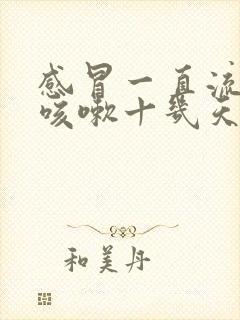 感冒一直流
咳嗽十几天
和美丹